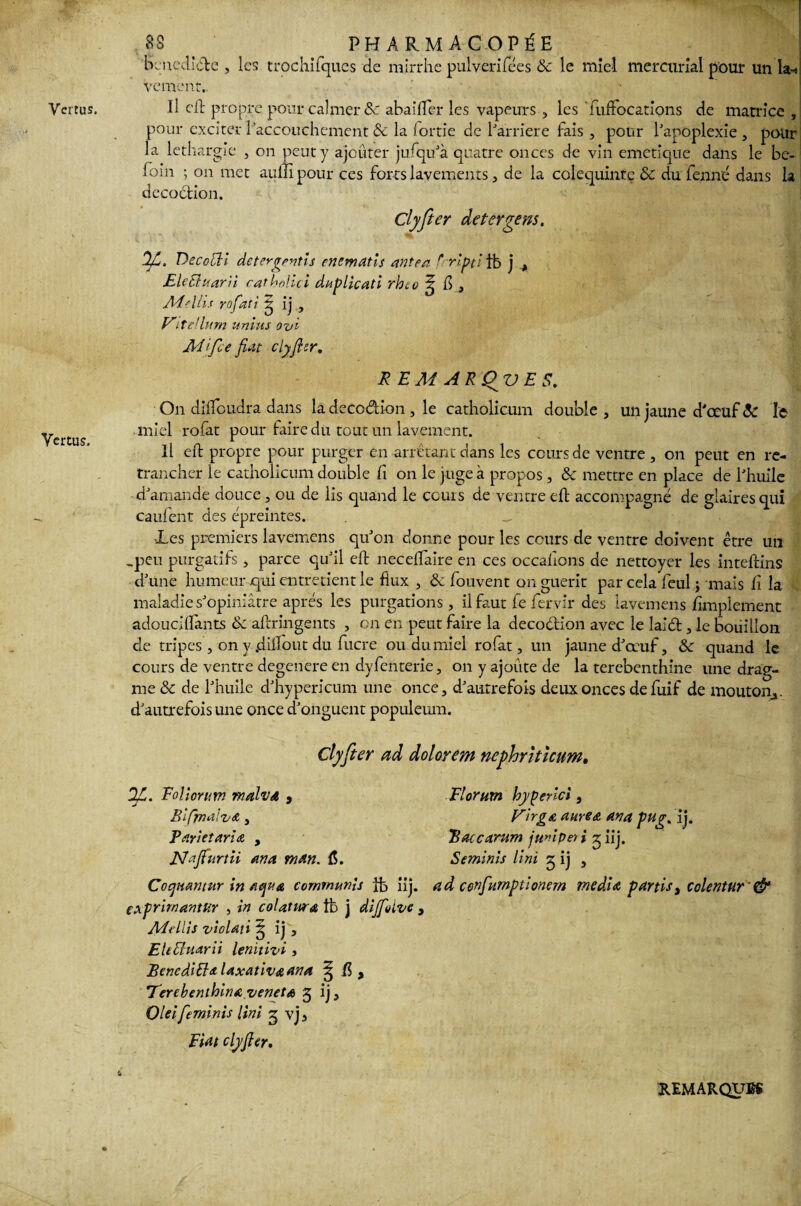 88 PHARMACOPÉE
benedicte, les trochisques de mirrhe pulverisées & le miel mercurial pour un la-
vement.
Vertus. Il est propre pour calmer & abaisser les vapeurs, les suffocations de matrice,
pour exciter l'accouchement & la sortie de l'arriere fais, pour l'apoplexie, pour
la lethargie, on peut y ajoûter jusqu'à quatre onces de vin emetique dans le be-
soin ; on met aussi pour ces forts lavements, de la colequinte & du senné dans la
decoction.
Clyster detergens.
℞. Decocti detergentis enematis antea scripti ℔ j,
Electuarii catholici duplicati rheo ℥ ß,
Mellis rosati ℥ ij,
Vitellum unius ovi
Misce fiat clyster.
REMARQVES.
On dissoudra dans la decoction, le catholicum double, un jaune d'œuf & le
miel rosat pour faire du tout un lavement.
Vertus. Il est propre pour purger en arrêtant dans les cours de ventre, on peut en re-
trancher le catholicum double si on le juge à propos, & mettre en place de l'huile
d'amande douce, ou de lis quand le cours de ventre est accompagné de glaires qui
causent des épreintes.
Les premiers lavemens qu'on donne pour les cours de ventre doivent être un
peu purgatifs, parce qu'il est necessaire en ces occasions de nettoyer les intestins
d'une humeur qui entretient le flux, & souvent on guerit par cela seul ; mais si la
maladie s'opiniâtre aprés les purgations, il faut se servir des lavemens simplement
adoucissants & astringents, on en peut faire la decoction avec le laict, le bouillon
de tripes, on y dissout du sucre ou du miel rosat, un jaune d'œuf, & quand le
cours de ventre degenere en dysenterie, on y ajoûte de la terebenthine une drag-
me & de l'huile d'hypericum une once, d'autrefois deux onces de suif de mouton,
d'autrefois une once d'onguent populeum.
Clyster ad dolorem nephriticum.
℞. Foliorum malvæ,
Bismalvæ,
Parietariæ,
Nasturtii ana man. ß.
Florum hyperici,
Virgæ aureæ ana pug. ij.
Baccarum juniperi ʒ iij.
Seminis lini ʒ ij,
Coquantur in aquæ communis ℔ iij. ad consumptionem mediæ partis, colentur &
exprimantur, in colaturæ ℔ j dissolve,
Mellis violati ℥ ij,
Electuarii lenitivi,
Benedictæ laxativæ ana ℥ ß,
Terebenthinæ venetæ ʒ ij,
Olei seminis lini ʒ vj,
Fiat clyster.
REMARQUES